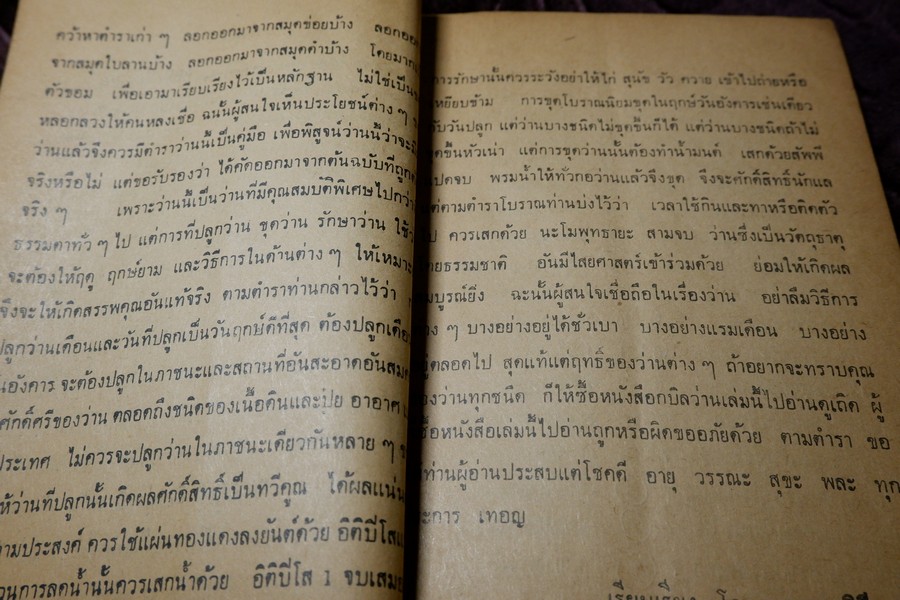 คว้าหาตำราเก่า ๆ ลอกออกมาจากสมุดข่อยบ้าง ลอกออก
จากสมุดใบลานบ้าง ลอกออกมาจากสมุดดำบ้าง โดยมาก
ตัวขอม เพื่อเอามาเรียบเรียงไว้เป็นหลักฐาน ไม่ใช่เป็น
หลอกลวงให้คนหลงเชื่อ ฉนั้นผู้สนใจเห็นประโยชน์ต่าง ๆ
ว่านแล้วจึงควรมีตำราว่านนี้เป็นคู่มือ เพื่อพิสูจน์ว่านนี้ว่าจะ
จริงหรือไม่ แต่ขอรับรองว่า ได้คัดออกมาจากต้นฉบับที่ถูก
จริง ๆ เพราะว่านนี้เป็นว่านที่มีคุณสมบัติพิเศษไปกว่า
ธรรมดาทั่ว ๆ ไป แต่การที่ปลูกว่าน ขุดว่าน รักษาว่าน ใช้
จะต้องให้ฤดู ฤกษ์ยาม และวิธีการในด้านต่าง ๆ ให้เหมาะ
จึงจะให้เกิดสรรพคุณอันแท้จริง ตามตำราท่านกล่าวไว้ว่า
ปลูกว่านเดือนและวันที่ปลูกเป็นวันฤกษ์ดีที่สุด ต้องปลูกเดือน
นอังคาร จะต้องปลูกในภาชนะและสถานที่อันสะอาดอันสม
ศักดิ์ศรีของว่าน ตลอดถึงชนิดของเนื้อดินและปุ๋ย อากาศ
ประเทศ ไม่ควรจะปลูกว่านในภาชนะเดียวกันหลาย ๆ
ห้ว่านที่ปลูกนั้นเกิดผลศักดิ์สิทธิ์เป็นทวีคูณ ได้ผลแน่น
ามประสงค์ ควรใช้แผ่นทองแดงลงยันต์ด้วย อิติปิโส
วนการลดน้ำนั้นควรเสกน้ำด้วย อิติปิโส 1 จบเสมอ
การรักษานั้นควรระวังอย่าให้ไก่ สุนัข วัว ควาย เข้าไปถ่ายหรือ
หยียบข้าม การขุดโบราณนิยมขุดในฤกษ์วันอังคารเช่นเดียว
รับวันปลูก แต่ว่านบางชนิดไม่ขุดขึ้นก็ได้ แต่ว่านบางชนิดถ้าไม่
ขุดขึ้นหัวเน่า แต่การขุดว่านนั้นต้องทำน้ำมนต์ เสกด้วยสัพพี
แปดจบ พรมน้ำให้ทั่วกอว่านแล้วจึงขุด จึงจะศักดิ์สิทธิ์นักแล
ต่ตามตำราโบราณท่านบ่งไว้ว่า เวลาใช้กินและทาหรือติดตัว
ป ควรเสกด้วย นะโมพุทธายะ สามจบ ว่านซึ่งเป็นวัตถุธาตุ
ายธรรมชาติ อันมีไสยศาสตร์เข้าร่วมด้วย ย่อมให้เกิดผล
มบูรณ์ยิ่ง ฉะนั้นผู้สนใจเชื่อถือในเรื่องว่าน อย่าลืมวิธีการ
าง ๆ บางอย่างอยู่ได้ชั่วเบา บางอย่างแรมเดือน บางอย่าง
ยู่ตลอดไป สุดแท้แต่ฤทธิ์ของว่านต่าง ๆ ถ้าอยากจะทราบคุณ
องว่านทุกชนิด ก็ให้ซื้อหนังสือกบิลว่านเล่มนี้ไปอ่านดูเถิด ผู้
ซื้อหนังสือเล่มนี้ไปอ่านถูกหรือผิดขออภัยด้วย ตามตำรา ขอ
ท่านผู้อ่านประสบแต่โชคดี อายุ วรรณะ สุขะ พละ ทุก
ะการ เทอญ
เรียบเรียง โดย